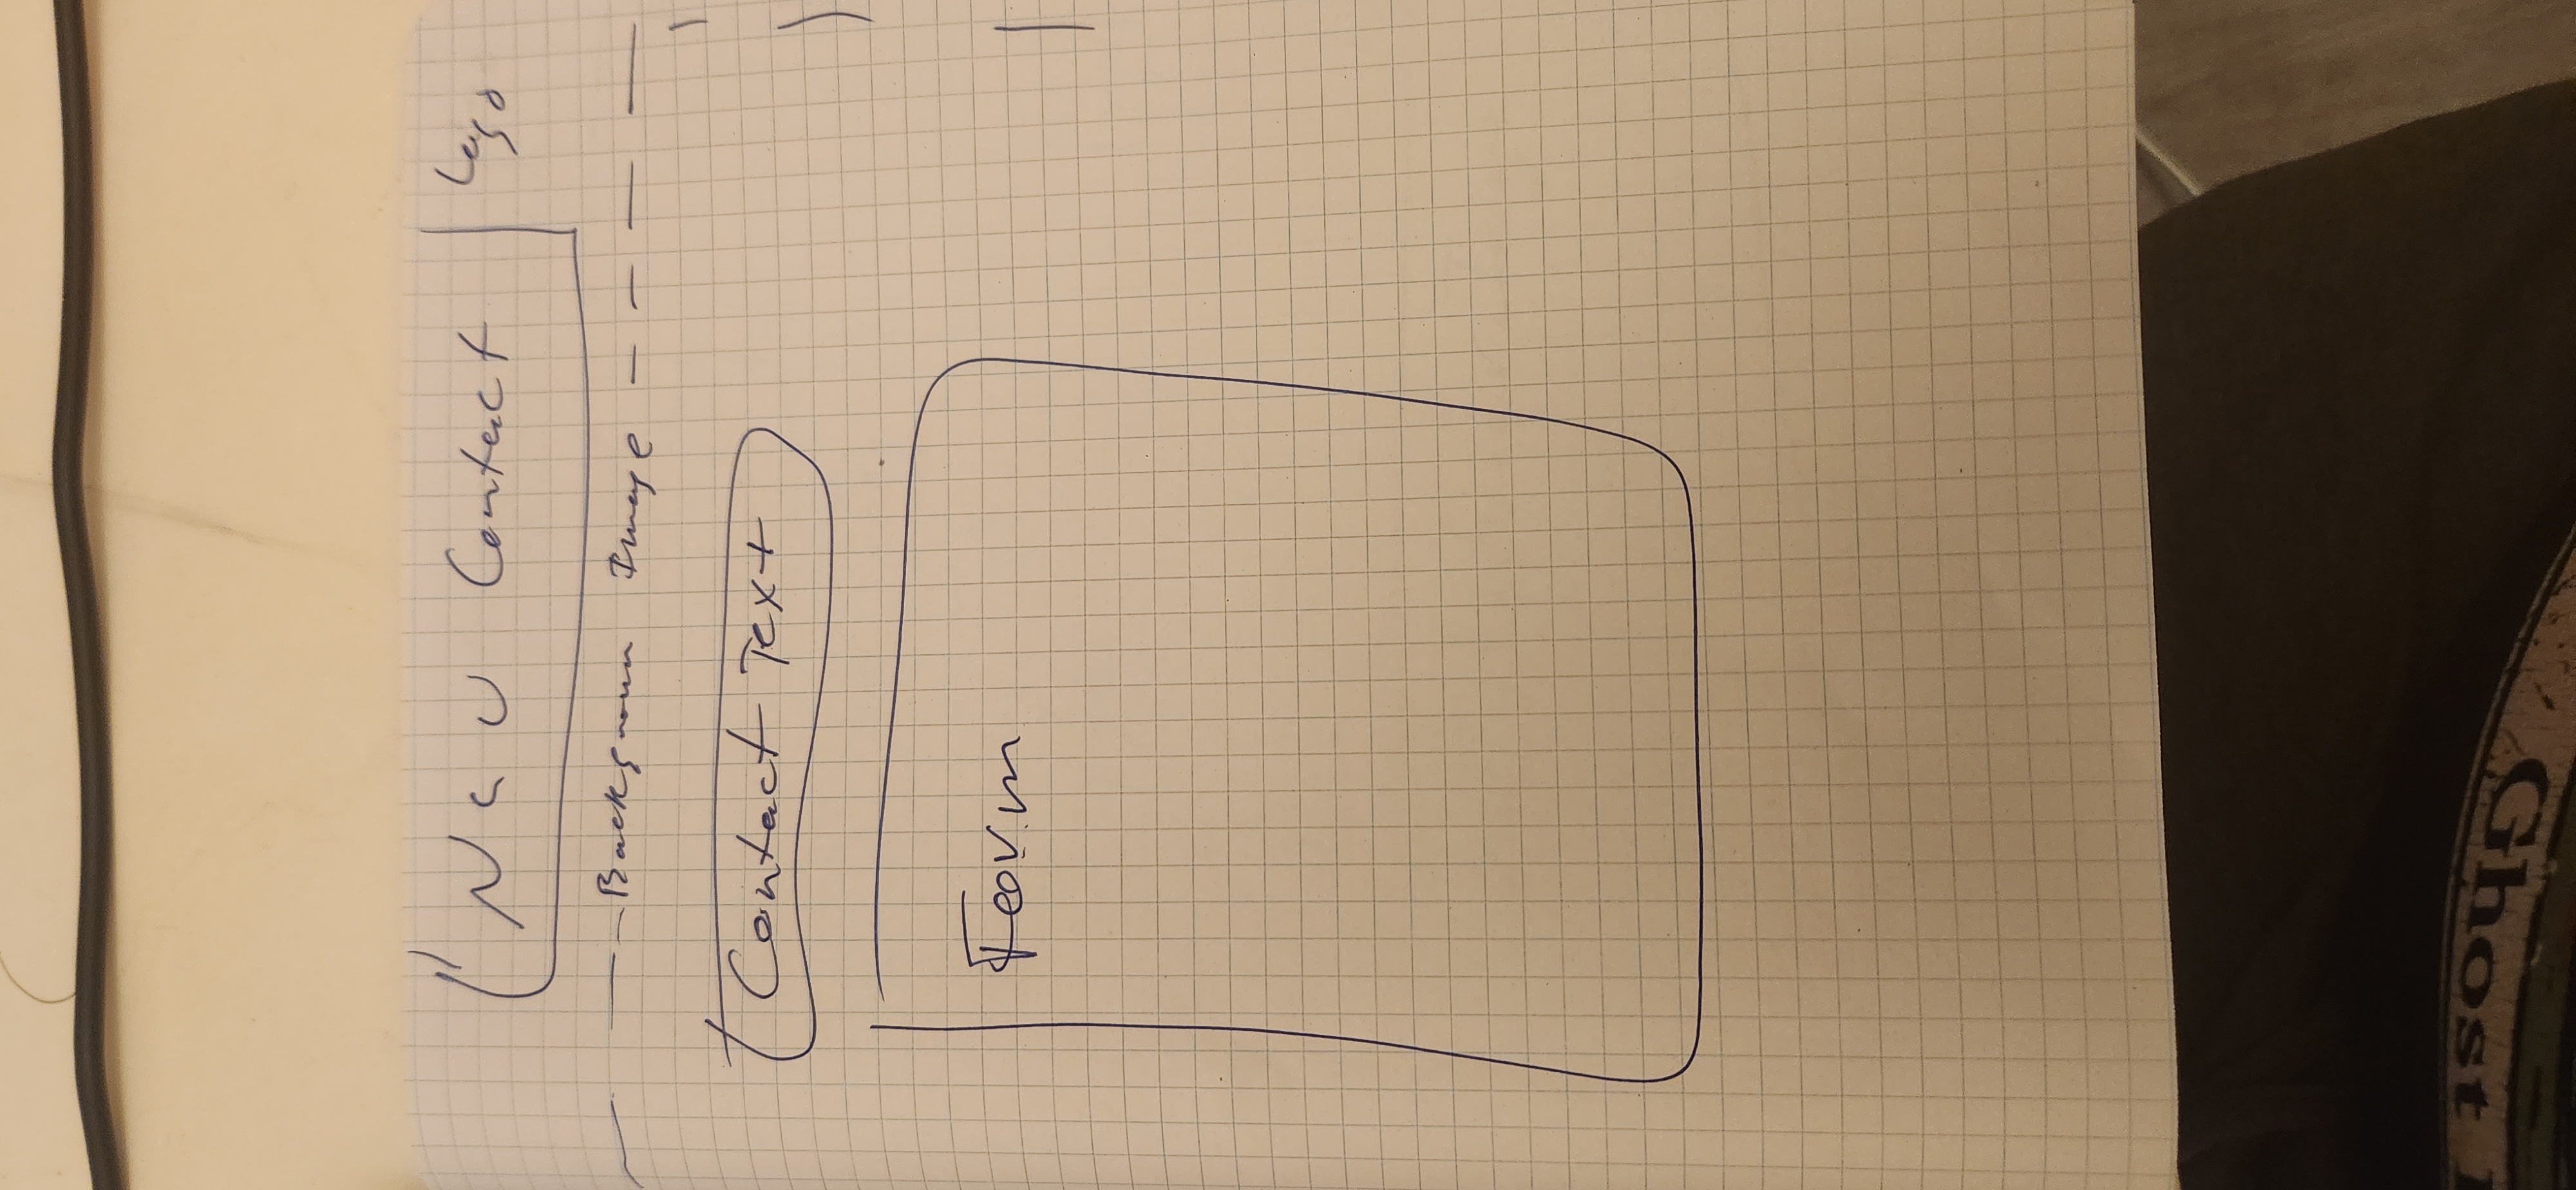 New Contact Logo
Backgroun Image
Contact Text
Form
Ghost